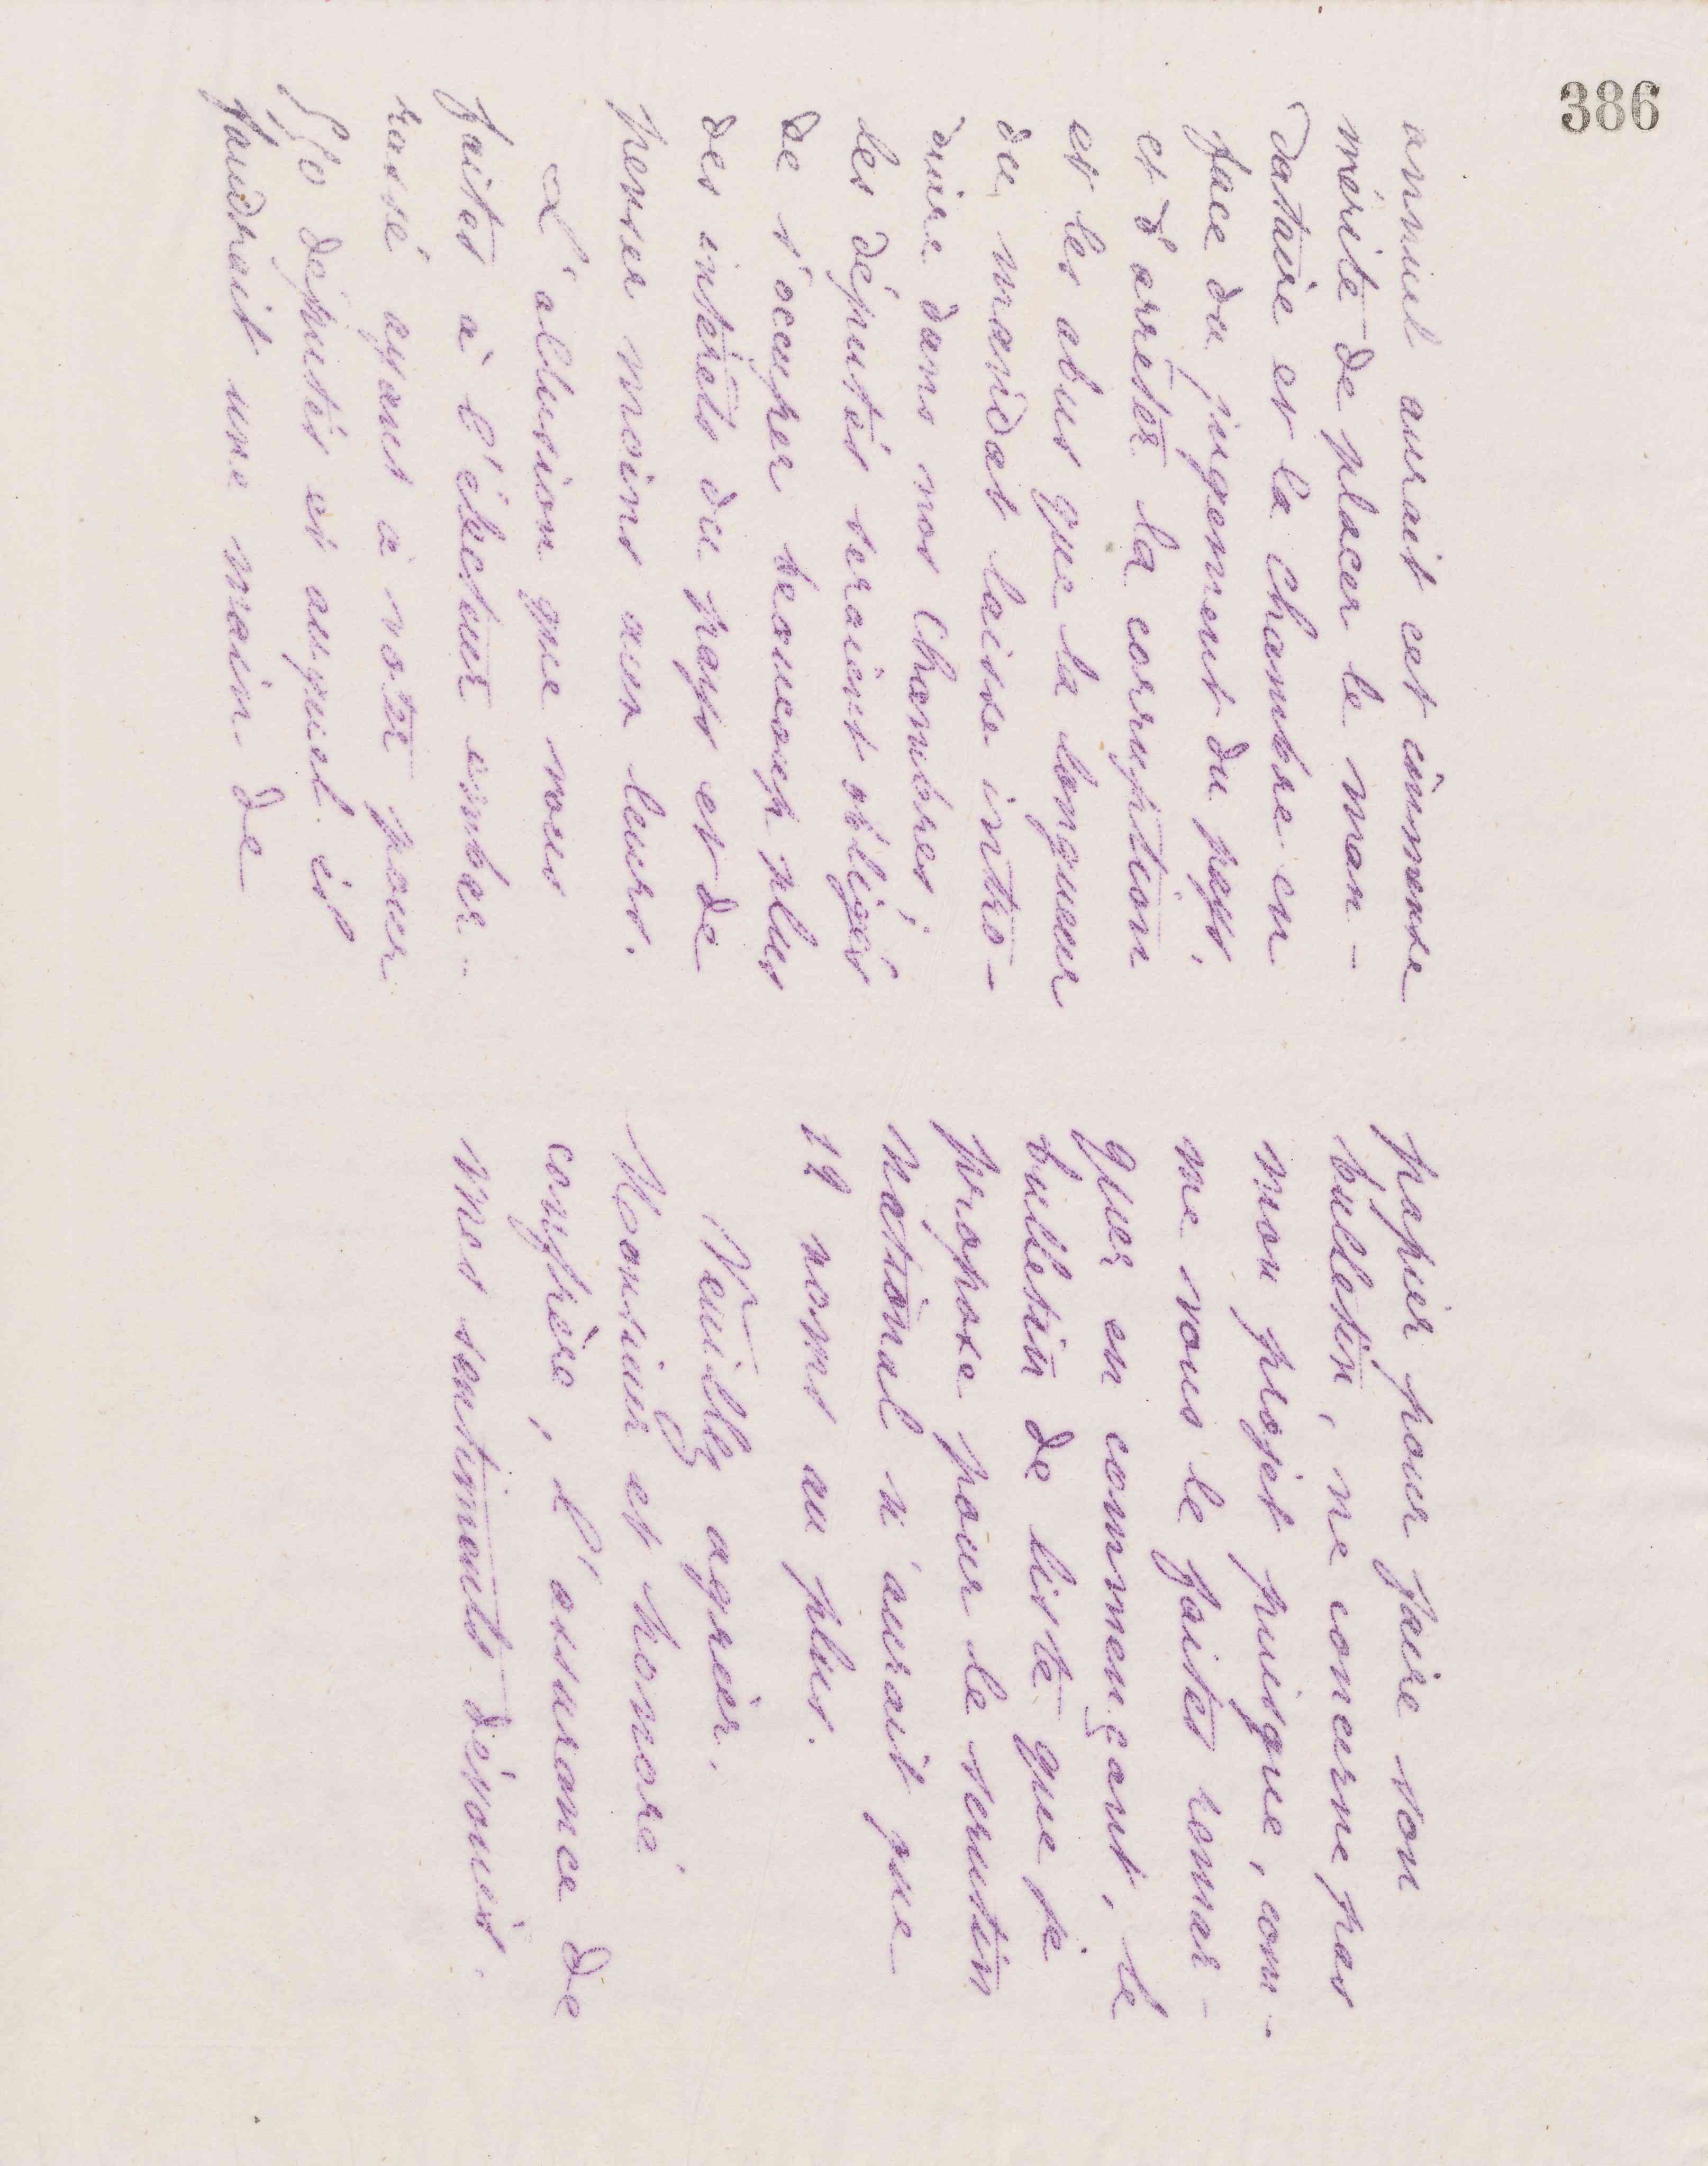 386
annuel aurait cet immense
mérite de placer le man-
dataire et la chambre en
face du jugement du pays,
et d'arrêter la corruption
et les abus que la longueur
du mandat laisse intro-
duire dans nos Chambres;
les députés seraient obligés
de s'occuper beaucoup plus
des intérêts du pays et de
penser moins aux leurs.
L'allusion que vous
faites à l'électeur embar-
rassé ayant à voter pour
députés et auquel il
faudrait une main de
papier pour faire son
bulletin, ne concerne pas
mon projet puisque, com-
me vous le faites remar-
quer en commençant, le
bulletin de liste que je
propose pour le scrutin
national n'aurait que
12 noms au plus.
Veuillez agréer,
Monsieur et honoré
confrère, l'assurance de
mes sentiments dévoués.